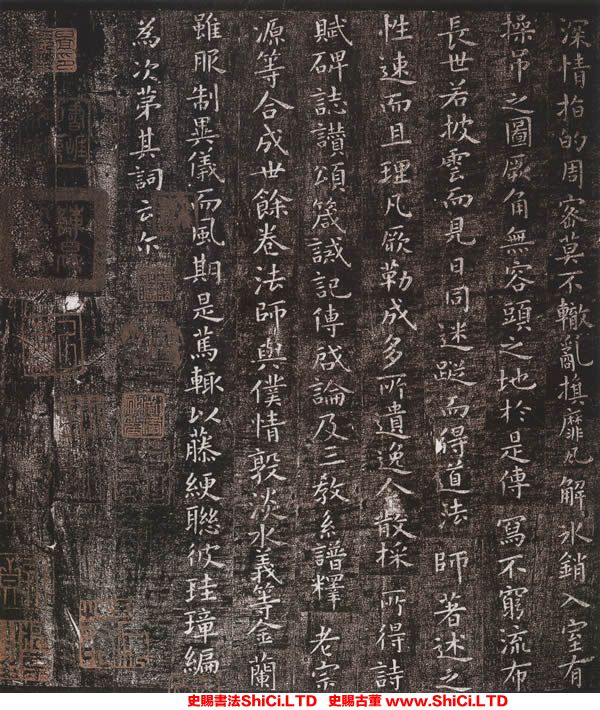 深情指的周密莫不轍亂旗靡瓦解氷銷入室有
操弔之圖厥角無容頭之地於是傳寫不窮流布
長世若披雲而見日同迷蹤而得道法師著述之
性速而且理凡厥勒成多所遺逸今散採所得詩
賦碑誌讃頌箴誡記傳啟論及三教系譜釋老宗
源等合成世餘卷法師與僕情敦淡水義等金蘭
雖服制異儀而風期是篤輒以藤綆聯彼珪璋編
為次第其詞云尔
史賜書法ShiCi.LTD 史賜古董 www.ShiCi.LTD